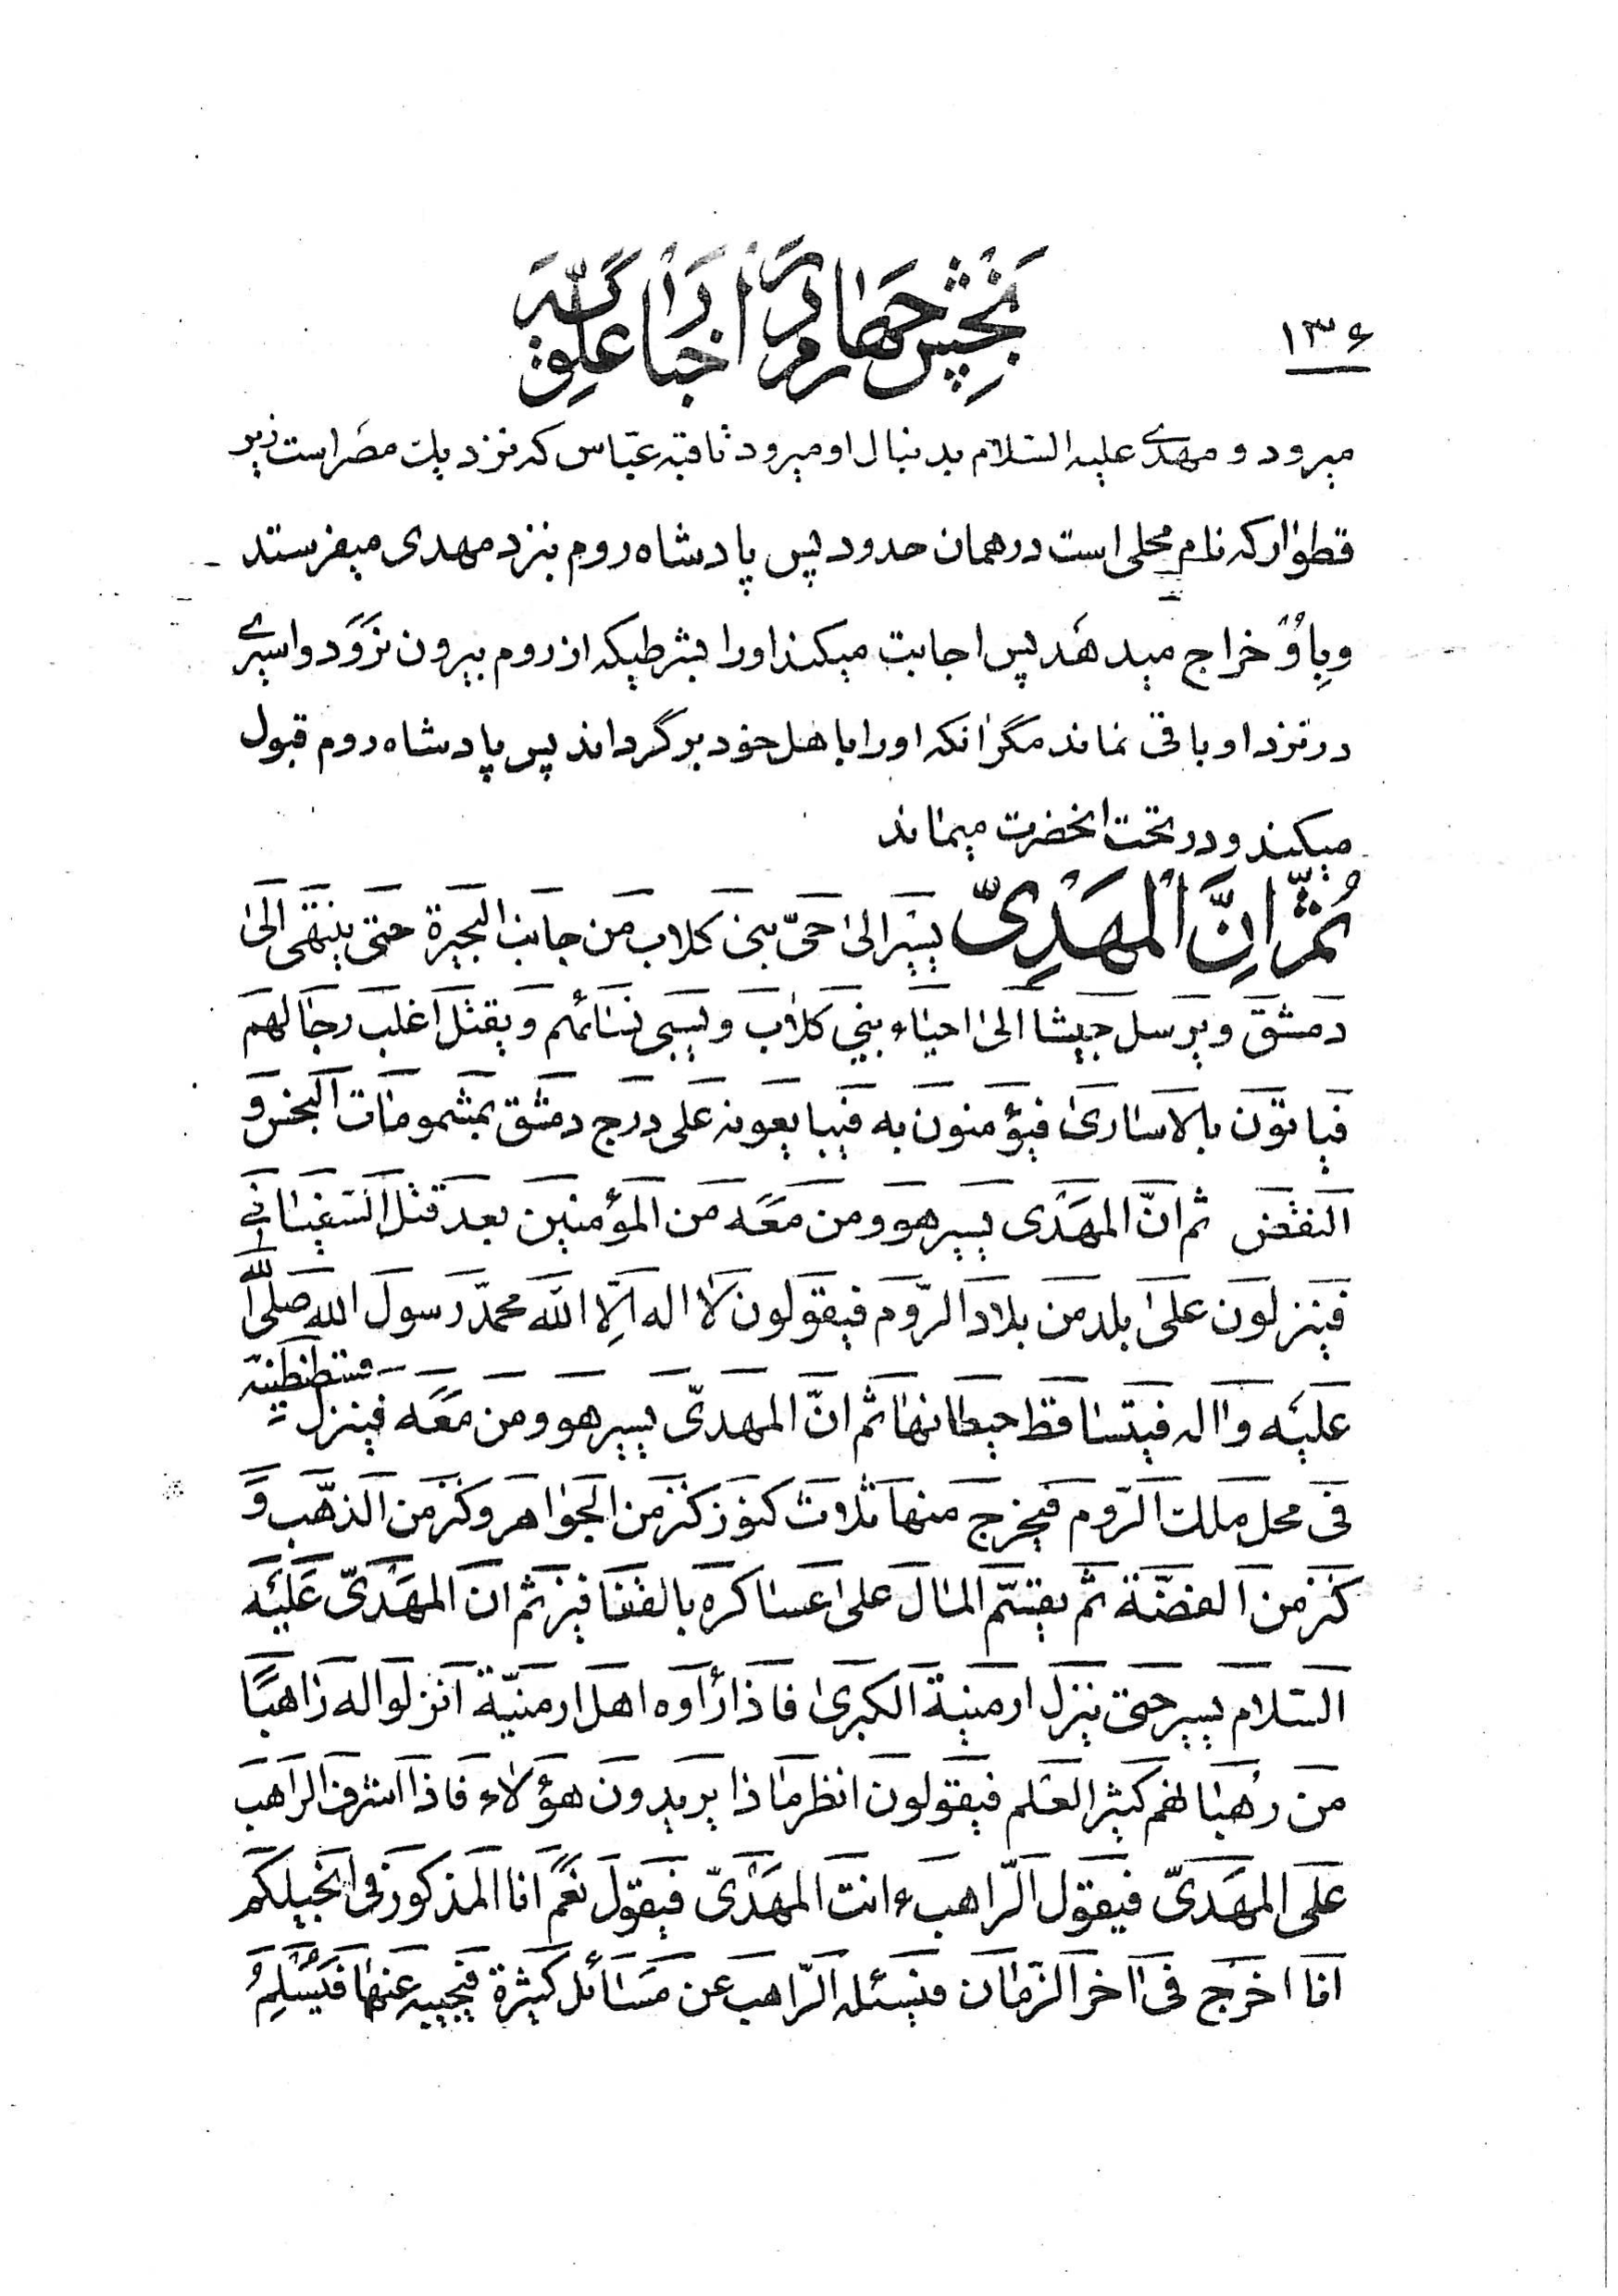 ۱۳۶
بخش چهارم در اخبار علویه
میرود و مهدی علیه السلام بدنبال او میرود تا قبهٔ عباس که نزد پلت مصر است زیر
قطوار که نام محلی است در همان حدود پس پادشاه روم بنزد مهدی میفرستد
و باو خراج میدهد پس اجابت میکند او را بشرطیکه از روم بیرون نرود و اسیری
در نزد او باقی نماند مگر انکه او را باهل خود برگرداند پس پادشاه روم قبول
میکند و در تحت انحضرت میماند
ثُمَّ اِنَّ الْمَهْدِیَّ یسیر الیٰ حیّ بنی کلاب من جانب البحیرة حتی ینتهی الیٰ
دمشق و یرسل جیشا الیٰ احیاء بنی کلاب و یسبی نسائهم و یقتل اغلب رجالهم
فیاتون بالاساریٰ فیؤمنون به فیبایعونه علی درج دمشق بمشمومات البخس و
النقض ثم انّ المهدی یسیر هو و من معه من المؤمنین بعد قتل السفیانی
فینزلون علیٰ بلد من بلاد الرّوم فیقولون لا اله الّا الله محمّد رسول الله صلی الله
علیه و اله فیتساقط حیطانها ثم انّ المهدیّ یسیر هو و من معه فینزل قسطنطنیه
فی محل ملک الرّوم فیخرج منها ثلاث کنوز کنز من الجواهر و کنز من الذهّب و
کنز من الفضّة ثم یقسّم المال علیٰ عساکره بالقفافیز ثم ان المهدیّ علیه
السلام یسیر حتی ینزل ارمنیة الکبریٰ فاذا رأوه اهل ارمنیّة انزلوا له راهبًا
من رهبانهم کثیر العلم فیقولون انظر ماذا یریدون هؤلاء فاذا اشرف الراهب
علی المهدیّ فیقول الرّاهب ءانت المهدیّ فیقول نعم انا المذکور فی انجیلکم
انا اخرج فی اخر الزّمان فیسئله الرّاهب عن مسائل کثیرة فیجیبه عنها فَیُسْلِمُ